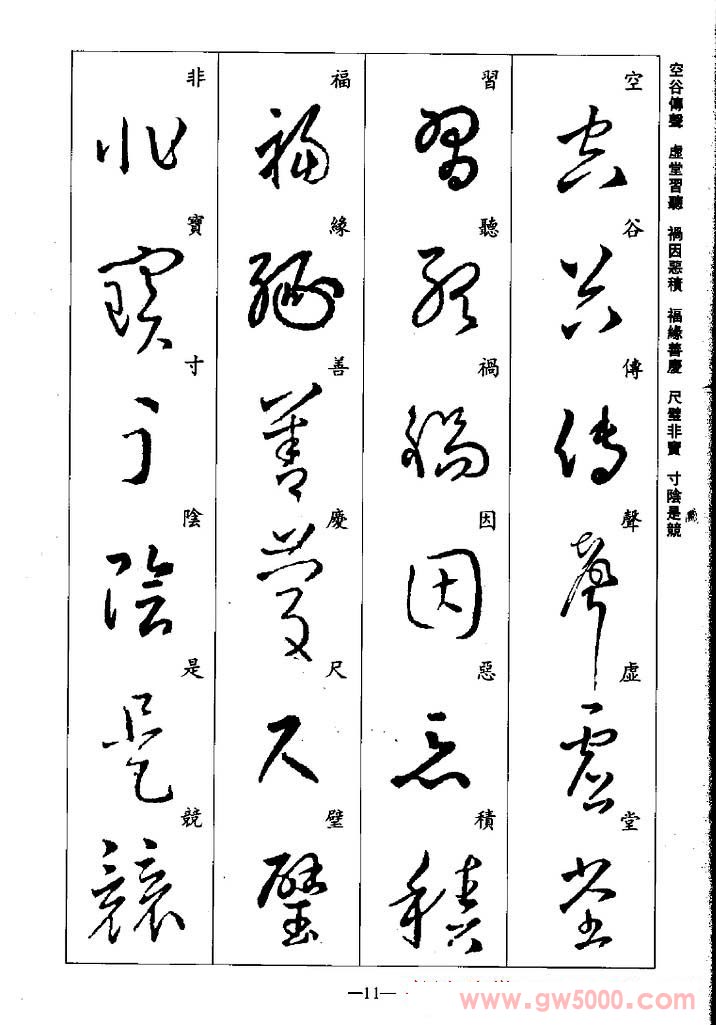 空谷傳聲　虛堂習聽　禍因惡積　福緣善慶　尺璧非寶　寸陰是競
空谷傳聲虛堂
習聽禍因惡積
福緣善慶尺璧
非寶寸陰是競
—11—
www.gw5000.com